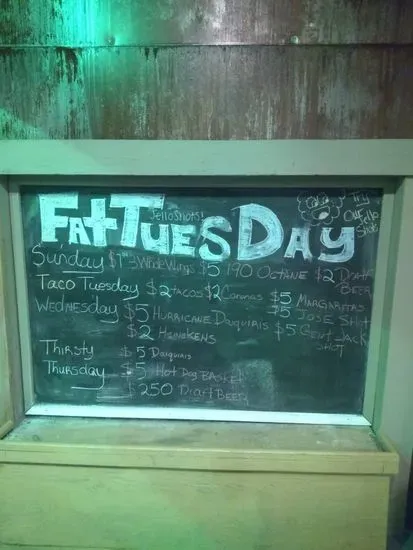 FAT TUESDAY
Jello Shots!
Try
Our Jello
Shots
Sunday $1 3 Whole Wings $5 190 Octane $2 Draft
Beer
Taco Tuesday $2 tacos $2 Coronas $5 Margaritas
$5 Jose Shot
Wednesday $5 Hurricane Daiquiris
$2 Heinekens $5 Gent Jack
Shot
Thirsty $5 Daiquiris
Thursday $5 Hot Dog Basket
$250 Draft Beer